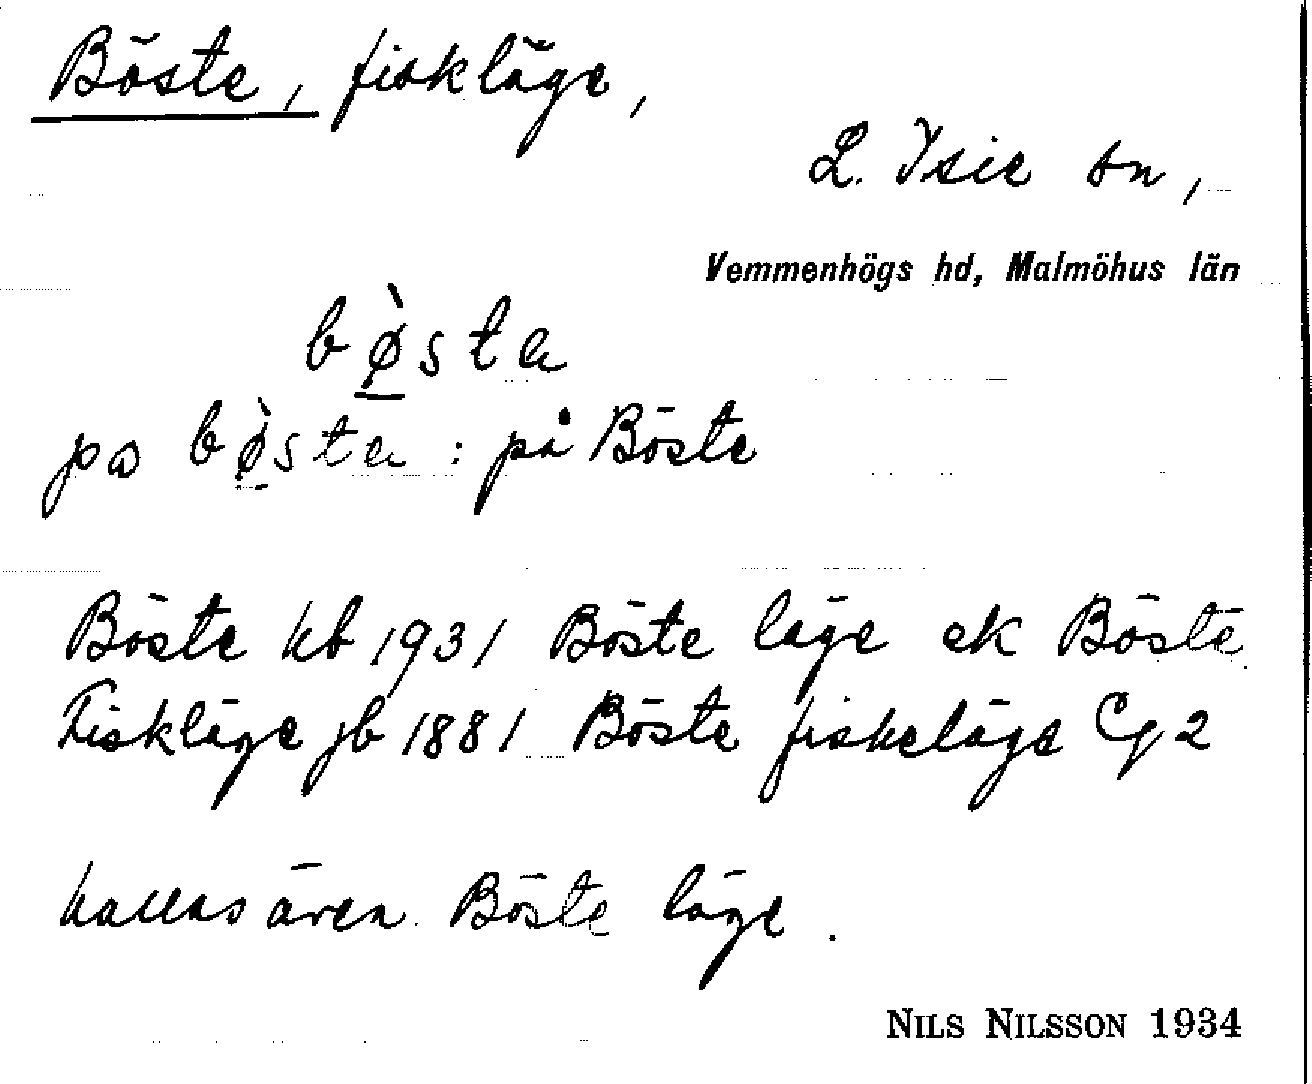 Böste, fiskläge,
L. Isie sn,
Vemmenhögs hd, Malmöhus län
bø̀sta
pa bø̀sta : på Böste
Böste kb 1931 Böste läge ek Böste
Fiskläge jb 1881 Böste fiskeläge Cg 2
kallas även Böste läge.
NILS NILSSON 1934